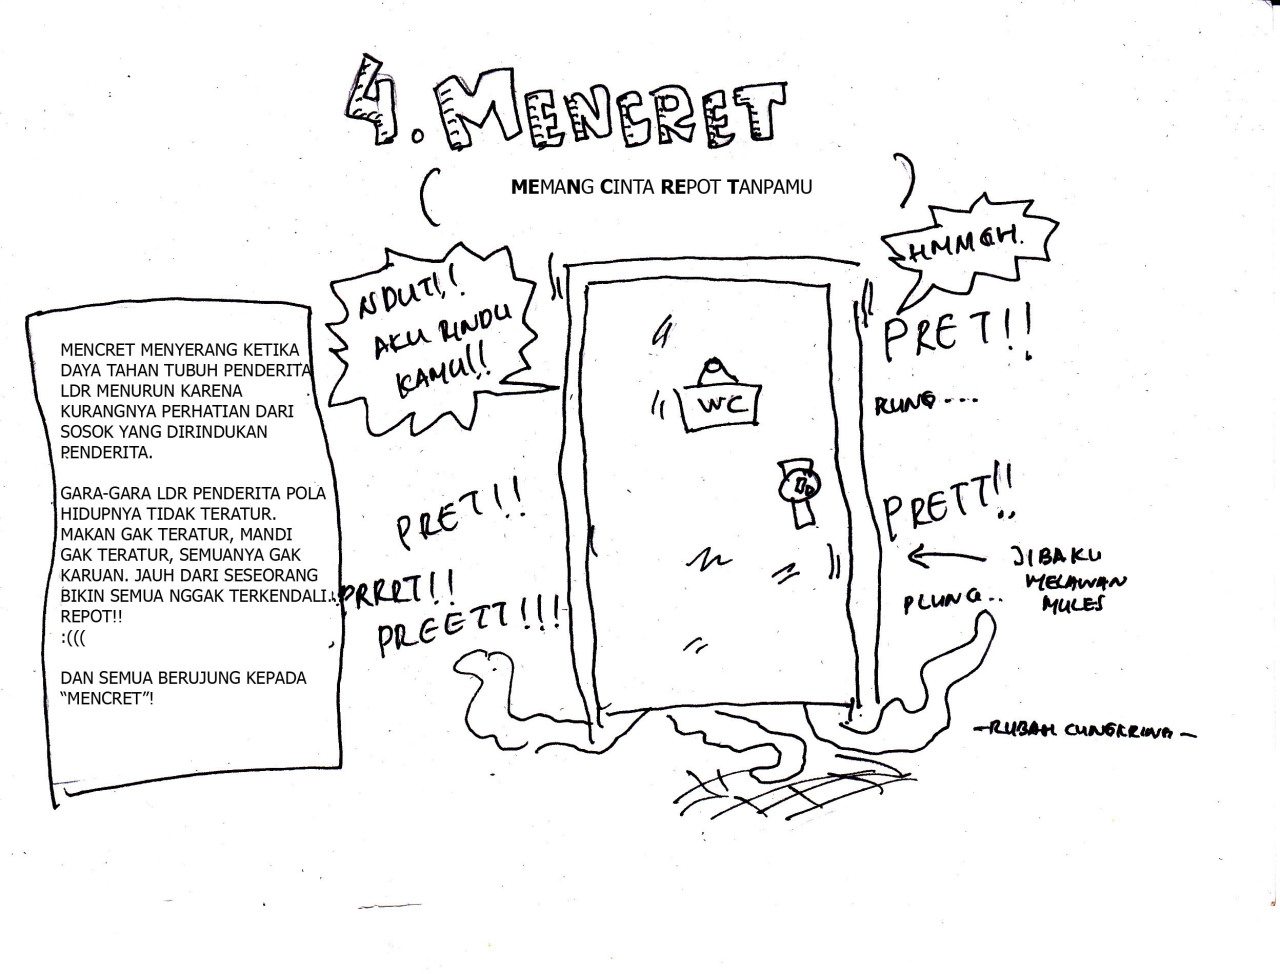 4. MENCRET
( MEMANG CINTA REPOT TANPAMU )
MENCRET MENYERANG KETIKA
DAYA TAHAN TUBUH PENDERITA
LDR MENURUN KARENA
KURANGNYA PERHATIAN DARI
SOSOK YANG DIRINDUKAN
PENDERITA.
GARA-GARA LDR PENDERITA POLA
HIDUPNYA TIDAK TERATUR.
MAKAN GAK TERATUR, MANDI
GAK TERATUR, SEMUANYA GAK
KARUAN. JAUH DARI SESEORANG
BIKIN SEMUA NGGAK TERKENDALI...
REPOT!!
:(((
DAN SEMUA BERUJUNG KEPADA
“MENCRET”!
NDUT!,!
AKU RINDU
KAMU!,!
PRET!!
PRRRT!!
PREETT!!!
WC
HMMGH.
PRET!!
RUNG...
PRETT!!
JIBAKU
MELAWAN
MULES
PLUNG..
-RUBAH CUNGKRING-